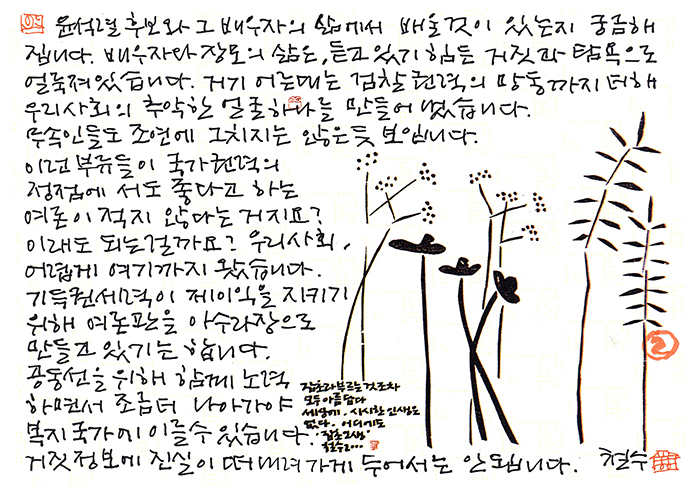 윤석렬 후보와 그 배우자의 삶에서 배울것이 있는지 궁금해
집니다. 배우자와 장모의 삶은, 듣고 있기 힘든 거짓과 탐욕으로
얼룩져있습니다. 거기 어느때는 검찰권력의 망동까지 더해
우리사회의 추악한 얼굴하나를 만들어 냈습니다.
무속인들도 조연에 그치지는 않은듯 보입니다.
이런 부류들이 국가권력의
정점에 서도 좋다고 하는
여론이 적지 않다는 거지요?
이래도 되는걸까요? 우리사회,
어렵게 여기까지 왔습니다.
기득권세력이 제이익을 지키기
위해 여론판을 아수라장으로
만들고 있기는 합니다.
공동선을 위해 함께 노력
하면서 조금더 나아가야
복지국가에 이를수 있습니다.
거짓정보에 진실이 떠내려가게 두어서는 안됩니다. 철수
잡초라 부르는 것조차
모두 아름답다
세상에. 시시한 인생은
없다. 어디에도
"잡초그림"
철수
2